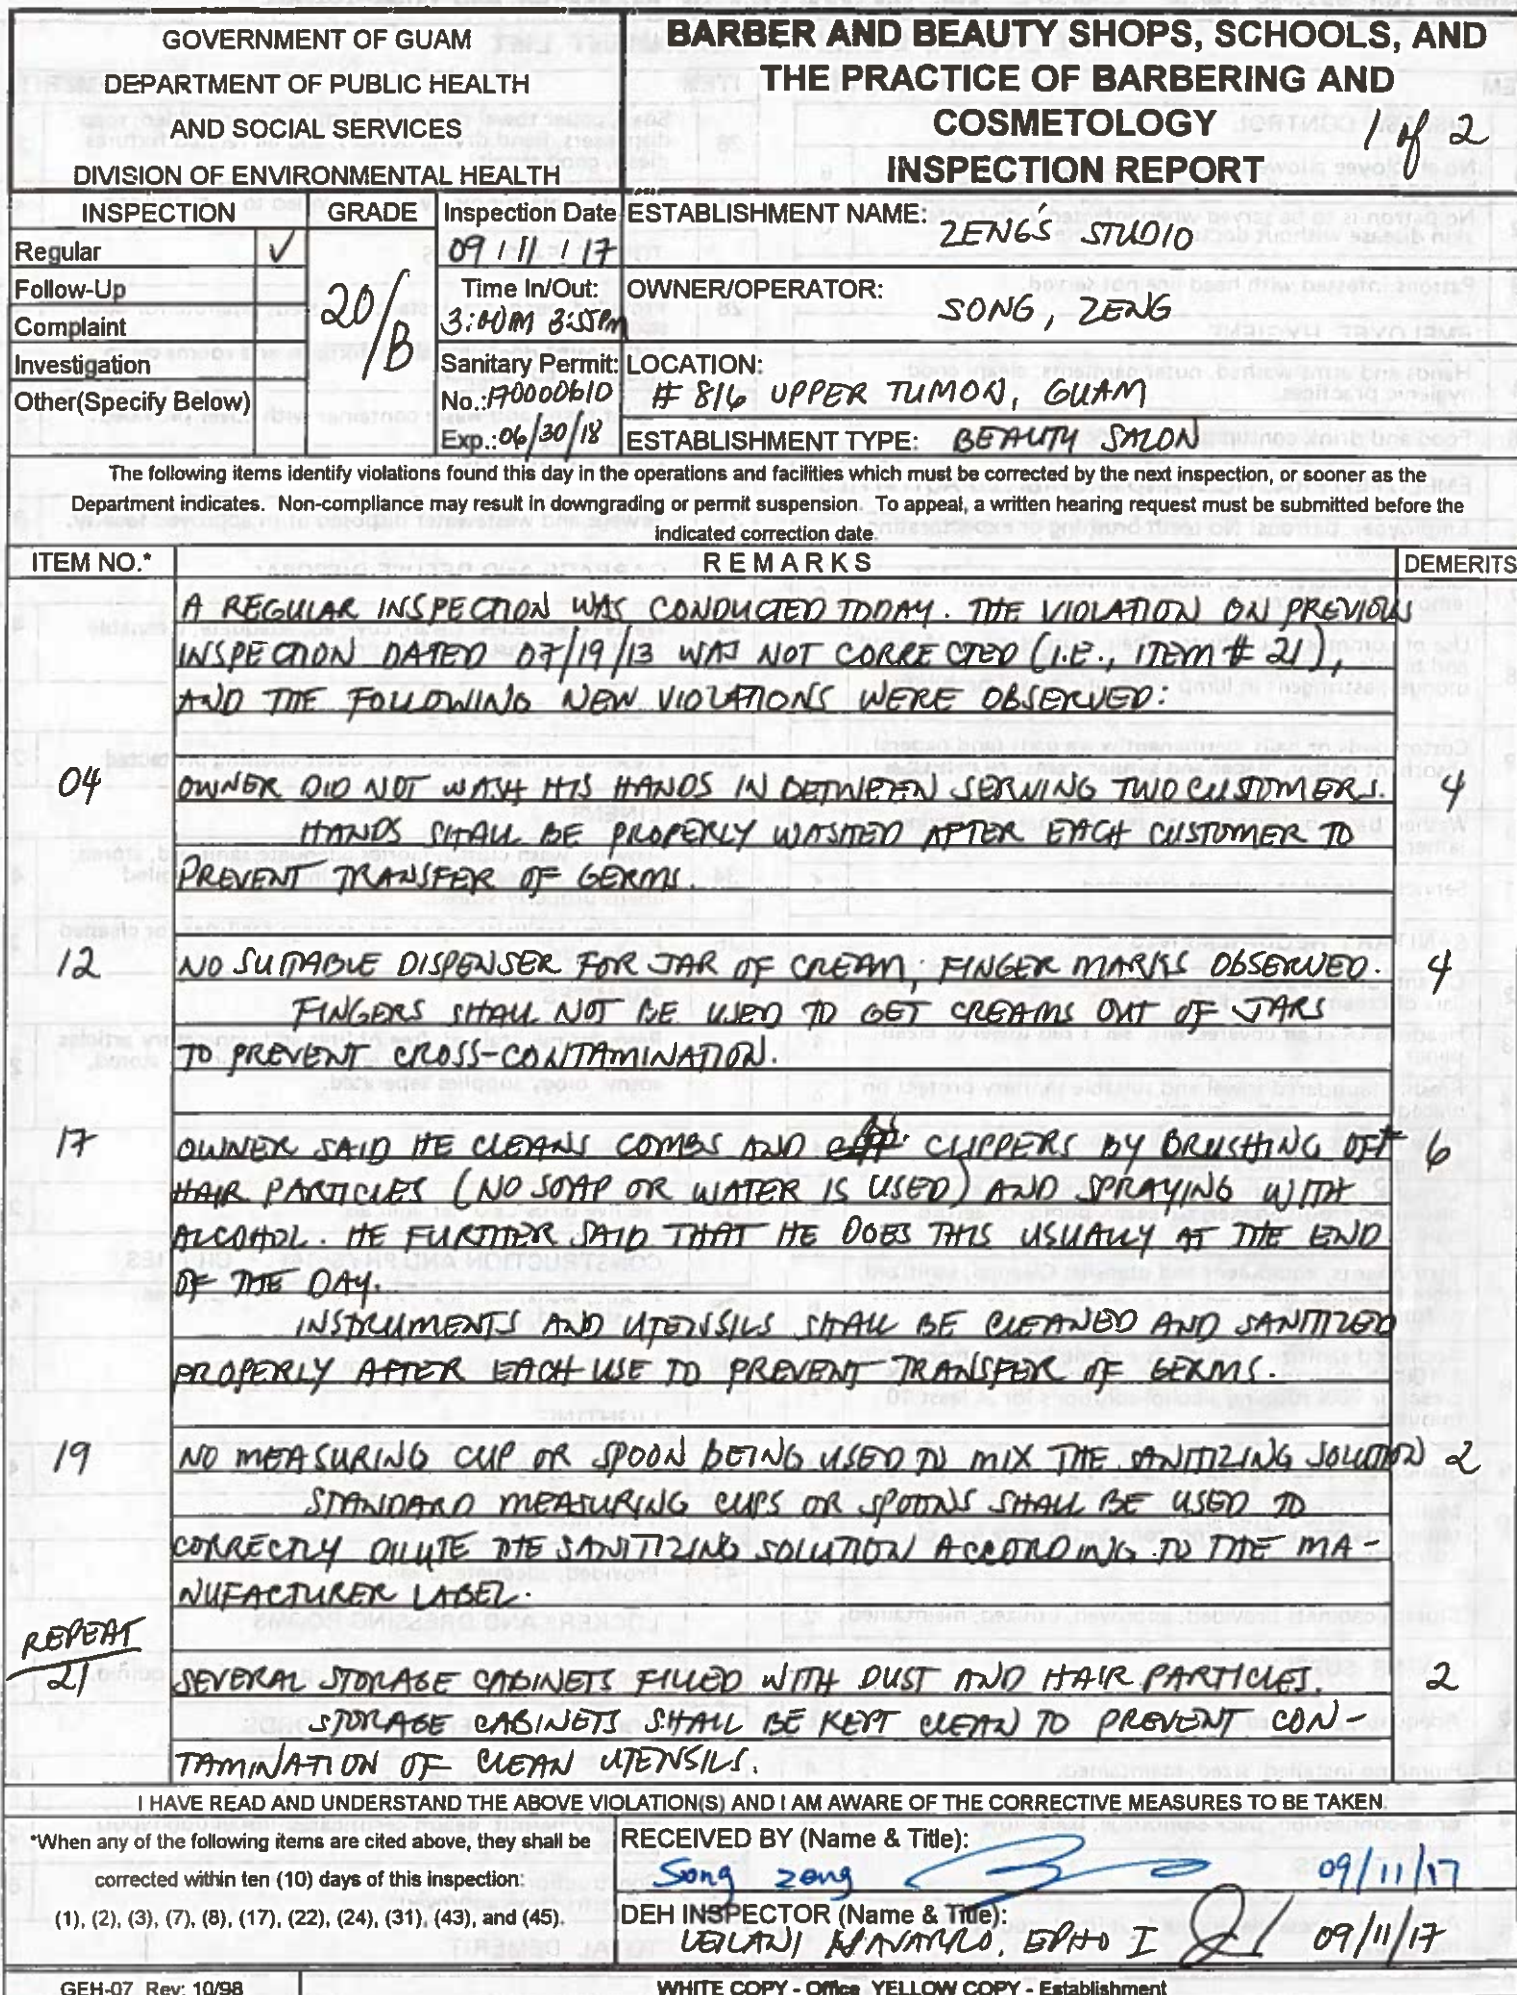 GOVERNMENT OF GUAM
DEPARTMENT OF PUBLIC HEALTH
AND SOCIAL SERVICES
DIVISION OF ENVIRONMENTAL HEALTH
BARBER AND BEAUTY SHOPS, SCHOOLS, AND
THE PRACTICE OF BARBERING AND
COSMETOLOGY
INSPECTION REPORT
1 of 2
INSPECTION
Regular ✓
Follow-Up
Complaint
Investigation
Other(Specify Below)
GRADE
20/B
Inspection Date
09 / 11 / 17
Time In/Out:
3:55PM
Sanitary Permit:
No.: 170000610
Exp.: 06/30/18
ESTABLISHMENT NAME:
ZENG'S STUDIO
OWNER/OPERATOR:
SONG, ZENG
LOCATION:
# 816 UPPER TUMON, GUAM
ESTABLISHMENT TYPE: BEAUTY SALON
The following items identify violations found this day in the operations and facilities which must be corrected by the next inspection, or sooner as the
Department indicates. Non-compliance may result in downgrading or permit suspension. To appeal, a written hearing request must be submitted before the
indicated correction date.
ITEM NO.* REMARKS DEMERITS
A REGULAR INSPECTION WAS CONDUCTED TODAY. THE VIOLATION ON PREVIOUS
INSPECTION DATED 07/19/13 WAS NOT CORRECTED (I.E., ITEM # 21),
AND THE FOLLOWING NEW VIOLATIONS WERE OBSERVED:
04 OWNER DID NOT WASH HIS HANDS IN BETWEEN SERVING TWO CUSTOMERS. 4
HANDS SHALL BE PROPERLY WASHED AFTER EACH CUSTOMER TO
PREVENT TRANSFER OF GERMS.
12 NO SUITABLE DISPENSER FOR JAR OF CREAM; FINGER MARKS OBSERVED. 4
FINGERS SHALL NOT BE USED TO GET CREAMS OUT OF JARS
TO PREVENT CROSS-CONTAMINATION.
17 OWNER SAID HE CLEANS COMBS AND CLIPPERS BY BRUSHING OFF 6
HAIR PARTICLES (NO SOAP OR WATER IS USED) AND SPRAYING WITH
ALCOHOL. HE FURTHER SAID THAT HE DOES THIS USUALLY AT THE END
OF THE DAY.
INSTRUMENTS AND UTENSILS SHALL BE CLEANED AND SANITIZED
PROPERLY AFTER EACH USE TO PREVENT TRANSFER OF GERMS.
19 NO MEASURING CUP OR SPOON BEING USED TO MIX THE SANITIZING SOLUTION 2
STANDARD MEASURING CUPS OR SPOONS SHALL BE USED TO
CORRECTLY DILUTE THE SANITIZING SOLUTION ACCORDING TO THE MA-
NUFACTURER LABEL.
REPEAT
21 SEVERAL STORAGE CABINETS FILLED WITH DUST AND HAIR PARTICLES. 2
STORAGE CABINETS SHALL BE KEPT CLEAN TO PREVENT CON-
TAMINATION OF CLEAN UTENSILS.
I HAVE READ AND UNDERSTAND THE ABOVE VIOLATION(S) AND I AM AWARE OF THE CORRECTIVE MEASURES TO BE TAKEN.
*When any of the following items are cited above, they shall be
corrected within ten (10) days of this inspection:
(1), (2), (3), (7), (8), (17), (22), (24), (31), (43), and (45).
RECEIVED BY (Name & Title):
Song zeng 09/11/17
DEH INSPECTOR (Name & Title):
LEILANI NAVARRO, EPHO I 09/11/17
GEH-07 Rev: 10/98
WHITE COPY - Office YELLOW COPY - Establishment